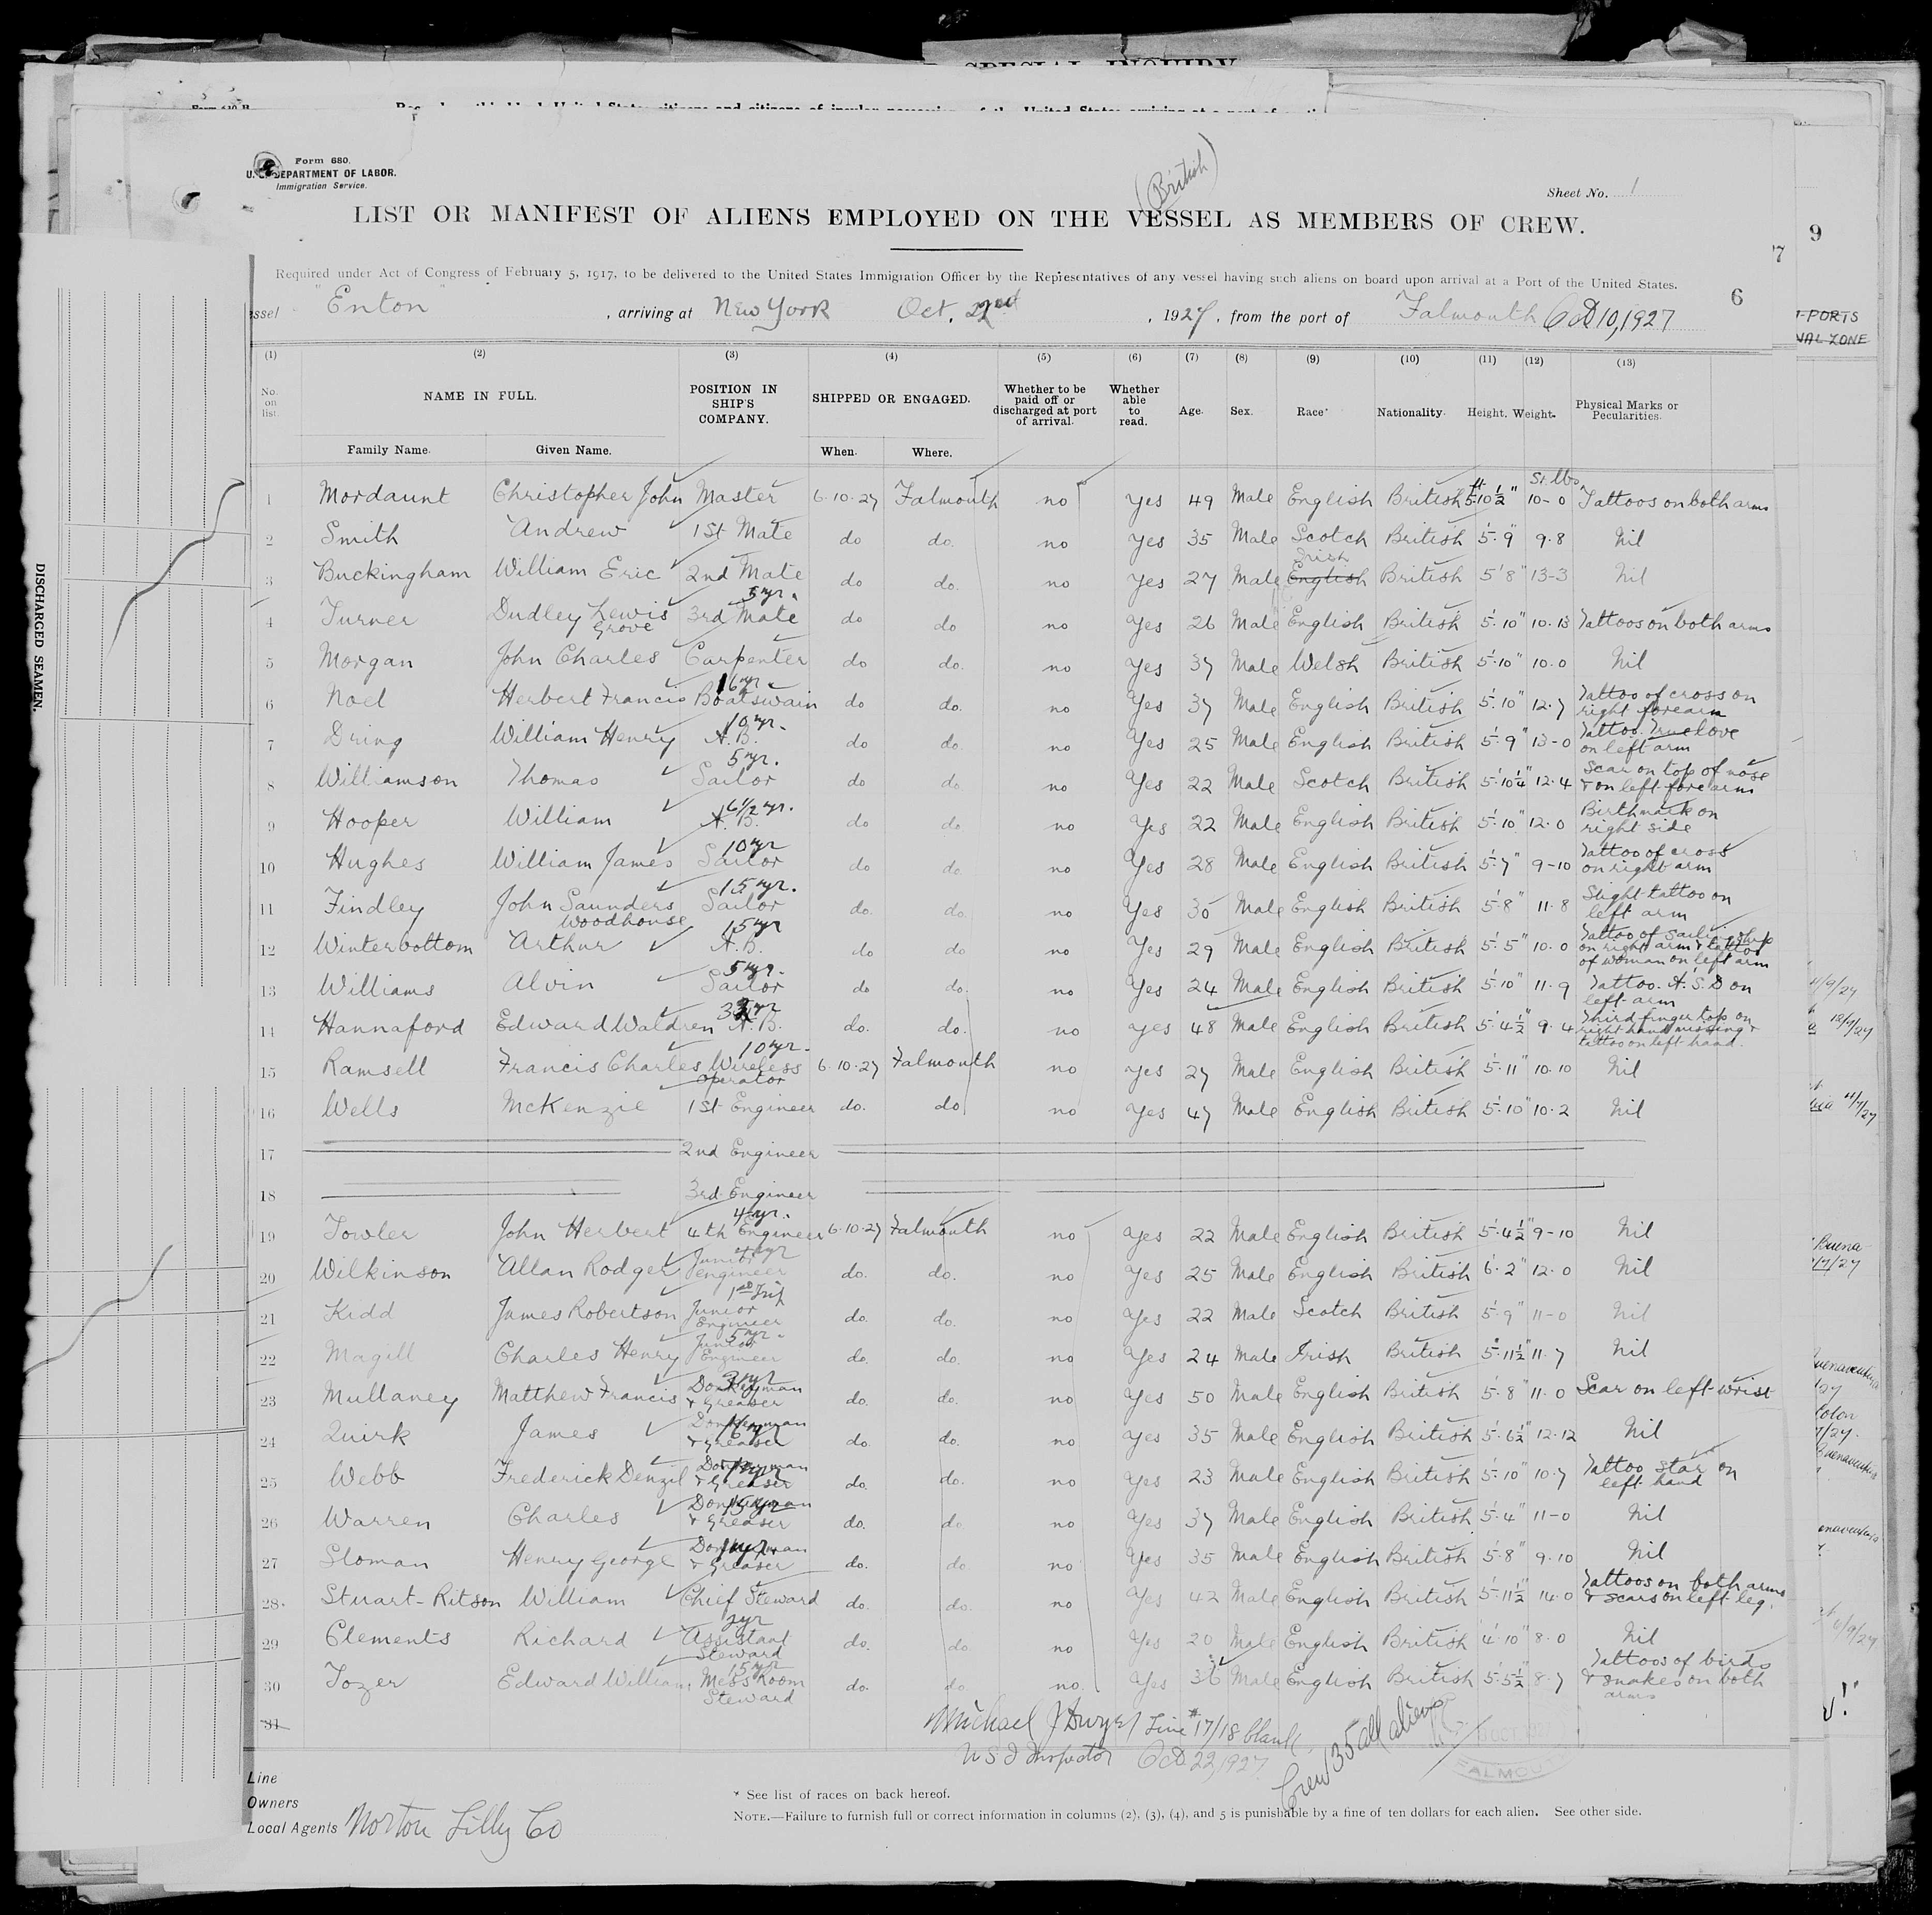 SPECIAL INQUIRY
Form 630 B
Form 680.
U. S. DEPARTMENT OF LABOR.
Immigration Service.
(British)
Sheet No. 1
LIST OR MANIFEST OF ALIENS EMPLOYED ON THE VESSEL AS MEMBERS OF CREW.
Required under Act of Congress of February 5, 1917, to be delivered to the United States Immigration Officer by the Representatives of any vessel having such aliens on board upon arrival at a Port of the United States.
ssel "Enton" , arriving at New York Oct. 22nd , 1927 , from the port of Falmouth Oct 10, 1927
6
7
9
PORTS
NAL ZONE
(1) (2) (3) (4) (5) (6) (7) (8) (9) (10) (11) (12) (13)
No. on list. NAME IN FULL. Family Name. Given Name. POSITION IN SHIP'S COMPANY. SHIPPED OR ENGAGED. When. Where. Whether to be paid off or discharged at port of arrival. Whether able to read. Age. Sex. Race* Nationality. Height. Weight. Physical Marks or Pecularities.
ft St. lbs
1 Mordaunt Christopher John Master 6.10.27 Falmouth no Yes 49 Male English British 5'10½" 10-0 Tattoos on both arms
2 Smith Andrew 1st Mate do do. no Yes 35 Male Scotch British 5'.9" 9.8 Nil
3 Buckingham William Eric 2nd Mate do do. no Yes 27 Male English Irish British 5'8" 13-3 Nil
4 Turner Dudley Lewis Grove 3rd Mate 5 yr. do do no Yes 26 Male English British 5'.10" 10.13 Tattoos on both arms
5 Morgan John Charles Carpenter do do. no Yes 37 Male Welsh British 5'.10" 10.0 Nil
6 Noel Herbert Francis Boatswain 16 yr. do do. no Yes 37 Male English British 5'.10" 12.7 Tattoo of cross on right forearm
7 Dring William Henry A.B. 10 yr. do do. no Yes 25 Male English British 5'.9" 13-0 Tattoo. Truelove on left arm
8 Williamson Thomas Sailor 5 yr. do do. no Yes 22 Male Scotch British 5'.10¼" 12.4 Scar on top of nose & on left forearm
9 Hooper William A.B. 6½ yr. do do. no Yes 22 Male English British 5'.10" 12.0 Birthmark on right side
10 Hughes William James Sailor 10 yr do do. no Yes 28 Male English British 5'.7" 9-10 Tattoo of cross on right arm
11 Findley John Saunders Woodhouse Sailor 15 yr. do. do. no Yes 30 Male English British 5'.8" 11.8 Slight tattoo on left arm
12 Winterbottom Arthur A.B. 15 yr do do no Yes 29 Male English British 5'.5" 10.0 Tattoo of sailing ship on right arm & tattoo of woman on left arm
13 Williams Alvin Sailor 5 yr. do do. no Yes 24 Male English British 5'.10" 11.9 Tattoo. A.S.D on left arm
14 Hannaford Edward Waldren A.B. do. do. no Yes 48 Male English British 5'.4½" 9.4 Third finger top on right hand missing & tattoo on left hand.
15 Ramsell Francis Charles Wireless operator 10 yr. 6.10.27 Falmouth no Yes 27 Male English British 5'.11" 10.10 Nil
16 Wells McKenzie 1st Engineer do. do no Yes 47 Male English British 5'.10" 10.2 Nil
17 2nd Engineer
18 3rd Engineer
19 Towler John Herbert 4th Engineer 4 yr. 6.10.27 Falmouth no Yes 22 Male English British 5'.4½" 9-10 Nil
20 Wilkinson Allan Rodger Junior engineer do. do. no Yes 25 Male English British 6'.2" 12.0 Nil
21 Kidd James Robertson Junior Engineer 1st Trip do. do. no Yes 22 Male Scotch British 5'.9" 11-0 Nil
22 Magill Charles Henry Junior Engineer 5 yr. do. do. no Yes 24 Male Irish British 5'.11½" 11.7 Nil
23 Mullaney Matthew Francis Donkeyman & Greaser do. do. no Yes 50 Male English British 5'.8" 11.0 Scar on left wrist
24 Quirk James Donkeyman & Greaser do. do. no Yes 35 Male English British 5'.6½" 12.12 Nil
25 Webb Frederick Denzil Donkeyman & Greaser do. do. no Yes 23 Male English British 5'.10" 10.7 Tattoo star on left hand
26 Warren Charles Donkeyman & Greaser 15 yr do. do no Yes 37 Male English British 5'.4" 11-0 Nil
27 Sloman Henry George Donkeyman & Greaser do. do no Yes 35 Male English British 5'.8" 9.10 Nil
28. Stuart-Ritson William Chief Steward do. do. no Yes 42 Male English British 5'.11½" 14.0 Tattoos on both arms & scars on left leg.
29 Clements Richard Assistant Steward 2 yr do. do. no Yes 20 Male English British 4'.10" 8.0 Nil
30 Tozer Edward William Mess Room Steward 15 yr do. do no. Yes 36 Male English British 5'.5½" 8.7 Tattoos of birds & snakes on both arms
31
Michael J Dwyer Line # 17/18 blank
U S I Inspector Oct 22, 1927
Crew 35 all aliens
FALMOUTH
Line
Owners
Local Agents Norton Lilly Co
* See list of races on back hereof.
NOTE.—Failure to furnish full or correct information in columns (2), (3), (4), and 5 is punishable by a fine of ten dollars for each alien. See other side.
DISCHARGED SEAMEN.